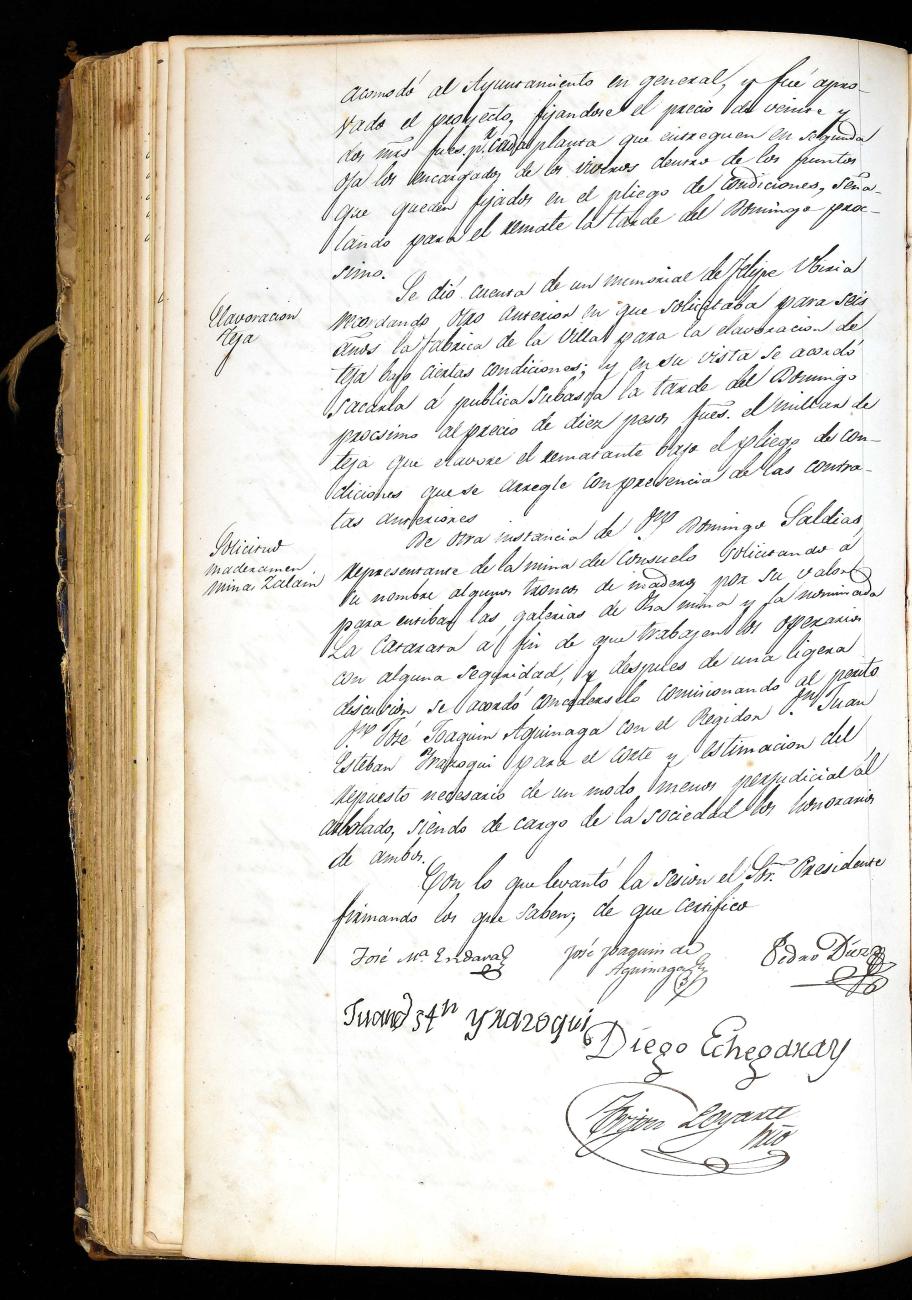 acomodó al Ayuntamiento en general, y fué apro-
vado el proyecto, fijandose el precio de veinte y
dos mrs fues. pr. cada planta que entreguen en segunda
oja los encargados de los viveros dentro de los puntos
que queden fijados en el pliego de condiciones, seña-
lando para el remate la tarde del Domingo proc-
simo.
Elavoracion
teja
Se dió cuenta de un memorial de Felipe Ubiria
recordando otro anterior en que solicitaba para seis
años la fabrica de la Villa para la elavoracion de
teja bajo ciertas condiciones; y en su vista se acordó
sacarla á publica subasta la tarde del Domingo
procsimo al precio de diez pesos fues. el millar de
teja que elavore el rematante bajo el pliego de con-
diciones que se arregle con presencia de las contra-
tas anteriores
Solicitud
maderamen
mina Zalain
De otra instancia de Dn Domingo Saldias
representante de la mina del Consuelo solicitando á
su nombre algunos troncos de maderas por su valor
para entibar las galerias de dha mina y la nominada
La Catarata á fin de que trabajen los operarios
con alguna seguridad, y despues de una ligera
discusion se acordó concederselo comisionando al perito
Dn José Joaquin Aguinaga con el Regidor Dn Juan
Esteban Yrazoqui para el corte y estimacion del
repuesto necesario de un modo menos perjudicial al
arbolado, siendo de cargo de la sociedad los honorarios
de ambos.
Con lo que levantó la sesion el Sor. Presidente
firmando los que saben; de que certifico
José Ma. Endara
José Joaquin de
Aguinaga
Pedro Diez
Juan Stn Yrazoqui
Diego Echegaray
Loyarte
Srio